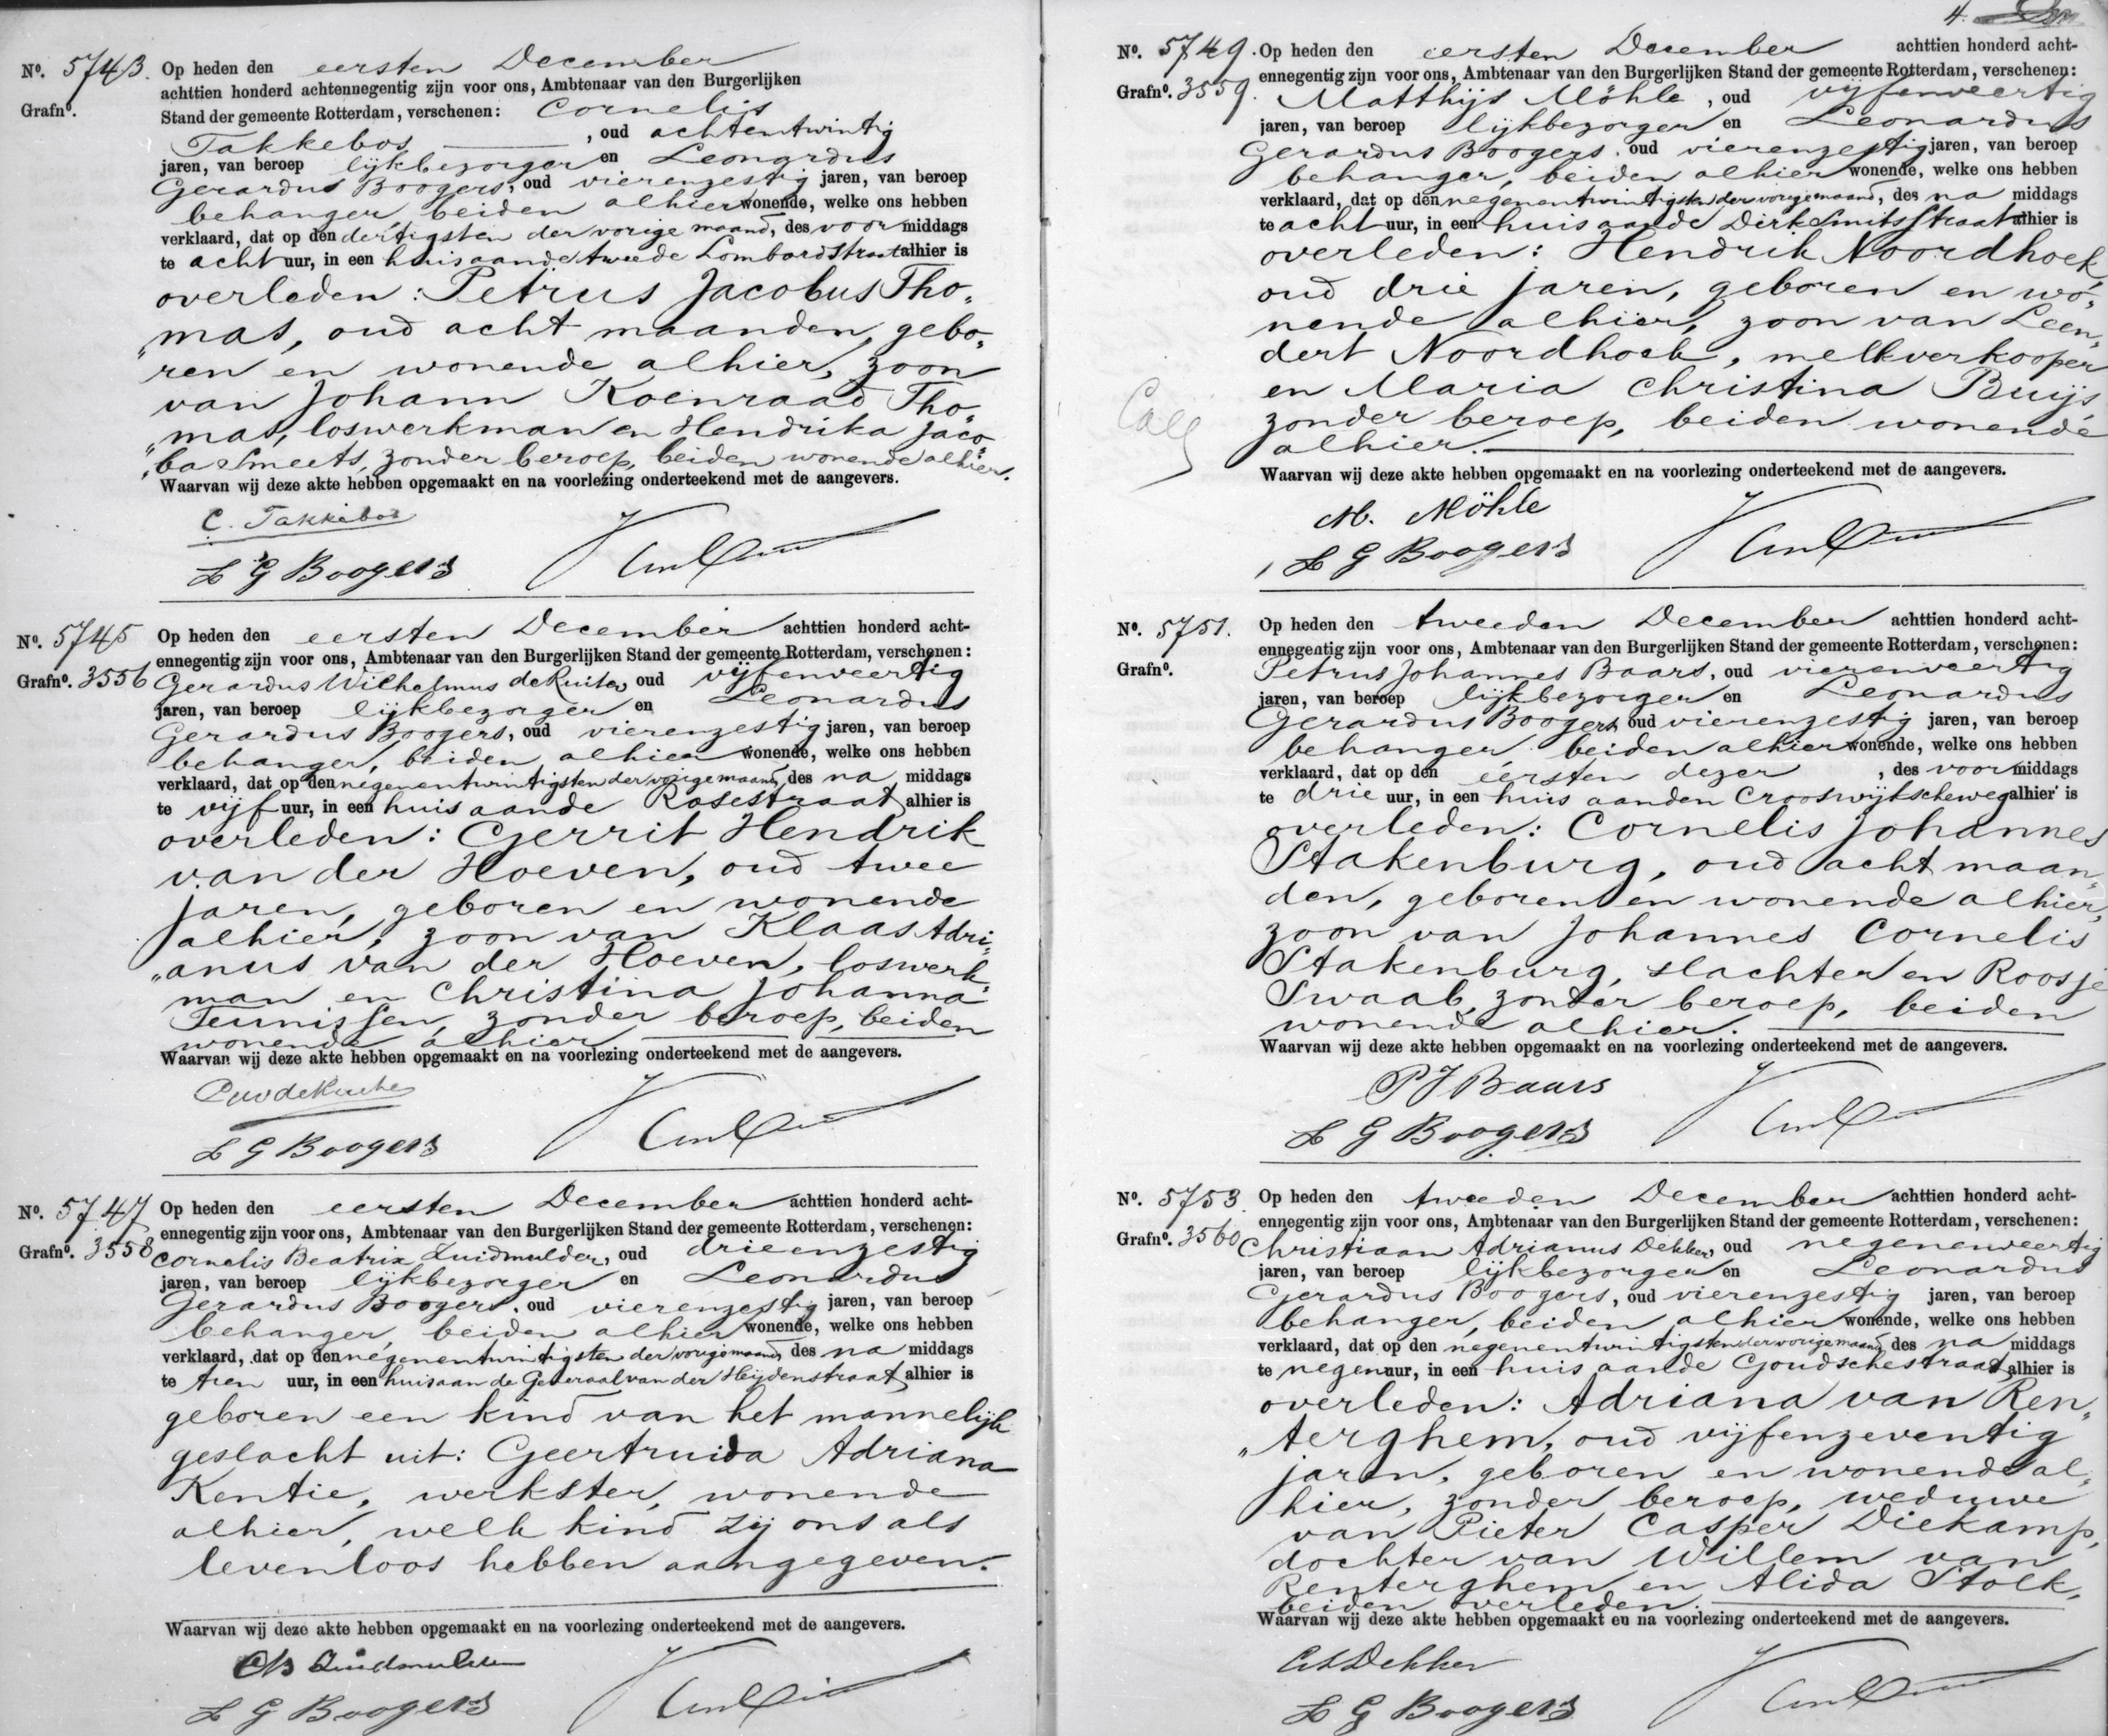 No. 5743. Op heden den eersten December
achttien honderd achtennegentig zijn voor ons, Ambtenaar van den Burgerlijken
Grafno.
Stand der gemeente Rotterdam, verschenen: Cornelis
Takkebos, oud achtentwintig
jaren, van beroep lijkbezorger en Leonardus
Gerardus Boogers, oud vierenzestig jaren, van beroep
behanger, beiden alhier wonende, welke ons hebben
verklaard, dat op den dertigsten der vorige maand, des voormiddags
te acht uur, in een huis aan de tweede Lombardstraat alhier is
overleden: Petrus Jacobus Tho„
„mas, oud acht maanden, gebo„
ren en wonende alhier, zoon
van Johann Koenraad Tho„
„mas, loswerkman en Hendrika Jaco„
„ba Smeets, zonder beroep, beiden wonende alhier.
Waarvan wij deze akte hebben opgemaakt en na voorlezing onderteekend met de aangevers.
C. Takkebos
L G Boogers
No. 5745 Op heden den eersten December achttien honderd acht-
ennegentig zijn voor ons, Ambtenaar van den Burgerlijken Stand der gemeente Rotterdam, verschenen:
Grafno. 3556 Gerardus Wilhelmus de Ruiter, oud vijfenveertig
jaren, van beroep lijkbezorger en Leonardus
Gerardus Boogers, oud vierenzestig jaren, van beroep
behanger, beiden alhier wonende, welke ons hebben
verklaard, dat op den negenentwintigsten der vorige maand, des na middags
te vijf uur, in een huis aan de Rosestraat alhier is
overleden: Gerrit Hendrik
van der Hoeven, oud twee
jaren, geboren en wonende
alhier, zoon van Klaas Adri„
„anus van der Hoeven, loswerk„
man en Christina Johanna
Teunissen, zonder beroep, beiden
wonende alhier
Waarvan wij deze akte hebben opgemaakt en na voorlezing onderteekend met de aangevers.
L G Boogers
No. 5747 Op heden den eersten December achttien honderd acht-
ennegentig zijn voor ons, Ambtenaar van den Burgerlijken Stand der gemeente Rotterdam, verschenen:
Grafno. 3558 Cornelis Beatrix Zuidmulder, oud drieenzestig
jaren, van beroep lijkbezorger en Leonardus
Gerardus Boogers, oud vierenzestig jaren, van beroep
behanger, beiden alhier wonende, welke ons hebben
verklaard, dat op den negenentwintigsten der vorige maand, des na middags
te tien uur, in een huis aan de Generaal van der Heijdenstraat alhier is
geboren een kind van het mannelijk
geslacht uit: Geertruida Adriana
Kentie, werkster, wonende
alhier, welk kind zij ons als
levenloos hebben aangegeven.
Waarvan wij deze akte hebben opgemaakt en na voorlezing onderteekend met de aangevers.
CB Zuidmulder
L G Boogers
4.
No. 5749. Op heden den eersten December achttien honderd acht-
ennegentig zijn voor ons, Ambtenaar van den Burgerlijken Stand der gemeente Rotterdam, verschenen:
Grafno. 3559. Matthijs Möhle, oud vijfenveertig
jaren, van beroep lijkbezorger en Leonardus
Gerardus Boogers, oud vierenzestig jaren, van beroep
behanger, beiden alhier wonende, welke ons hebben
verklaard, dat op den negenentwintigsten der vorige maand, des na middags
te acht uur, in een huis aan de Dirk Smitsstraat alhier is
overleden: Hendrik Noordhoek,
oud drie jaren, geboren en wo„
nende alhier, zoon van Leen„
dert Noordhoek, melkverkooper
en Maria Christina Buijs,
zonder beroep, beiden wonende
alhier.
Waarvan wij deze akte hebben opgemaakt en na voorlezing onderteekend met de aangevers.
M. Möhle
L G Boogers
No. 5751. Op heden den tweeden December achttien honderd acht-
ennegentig zijn voor ons, Ambtenaar van den Burgerlijken Stand der gemeente Rotterdam, verschenen:
Grafno. Petrus Johannes Baars, oud vierenveertig
jaren, van beroep lijkbezorger en Leonardus
Gerardus Boogers, oud vierenzestig jaren, van beroep
behanger, beiden alhier wonende, welke ons hebben
verklaard, dat op den eersten dezer, des voormiddags
te drie uur, in een huis aan den Crooswijkscheweg alhier is
overleden: Cornelis Johannes
Stakenburg, oud acht maan„
den, geboren en wonende alhier,
zoon van Johannes Cornelis
Stakenburg, slachter en Roosje
Swaab, zonder beroep, beiden
wonende alhier.
Waarvan wij deze akte hebben opgemaakt en na voorlezing onderteekend met de aangevers.
P J Baars
L G Boogers
No. 5753. Op heden den tweeden December achttien honderd acht-
ennegentig zijn voor ons, Ambtenaar van den Burgerlijken Stand der gemeente Rotterdam, verschenen:
Grafno. 3560 Christiaan Adrianus Dekker, oud negenenveertig
jaren, van beroep lijkbezorger en Leonardus
Gerardus Boogers, oud vierenzestig jaren, van beroep
behanger, beiden alhier wonende, welke ons hebben
verklaard, dat op den negenentwintigsten der vorige maand, des na middags
te negen uur, in een huis aan de Goudschestraat alhier is
overleden: Adriana van Ren„
„terghem, oud vijfenzeventig
jaren, geboren en wonende al„
hier, zonder beroep, weduwe
van Pieter Casper Diekamp,
dochter van Willem van
Renterghem en Alida Stolk,
beiden overleden.
Waarvan wij deze akte hebben opgemaakt en na voorlezing onderteekend met de aangevers.
CA Dekker
L G Boogers